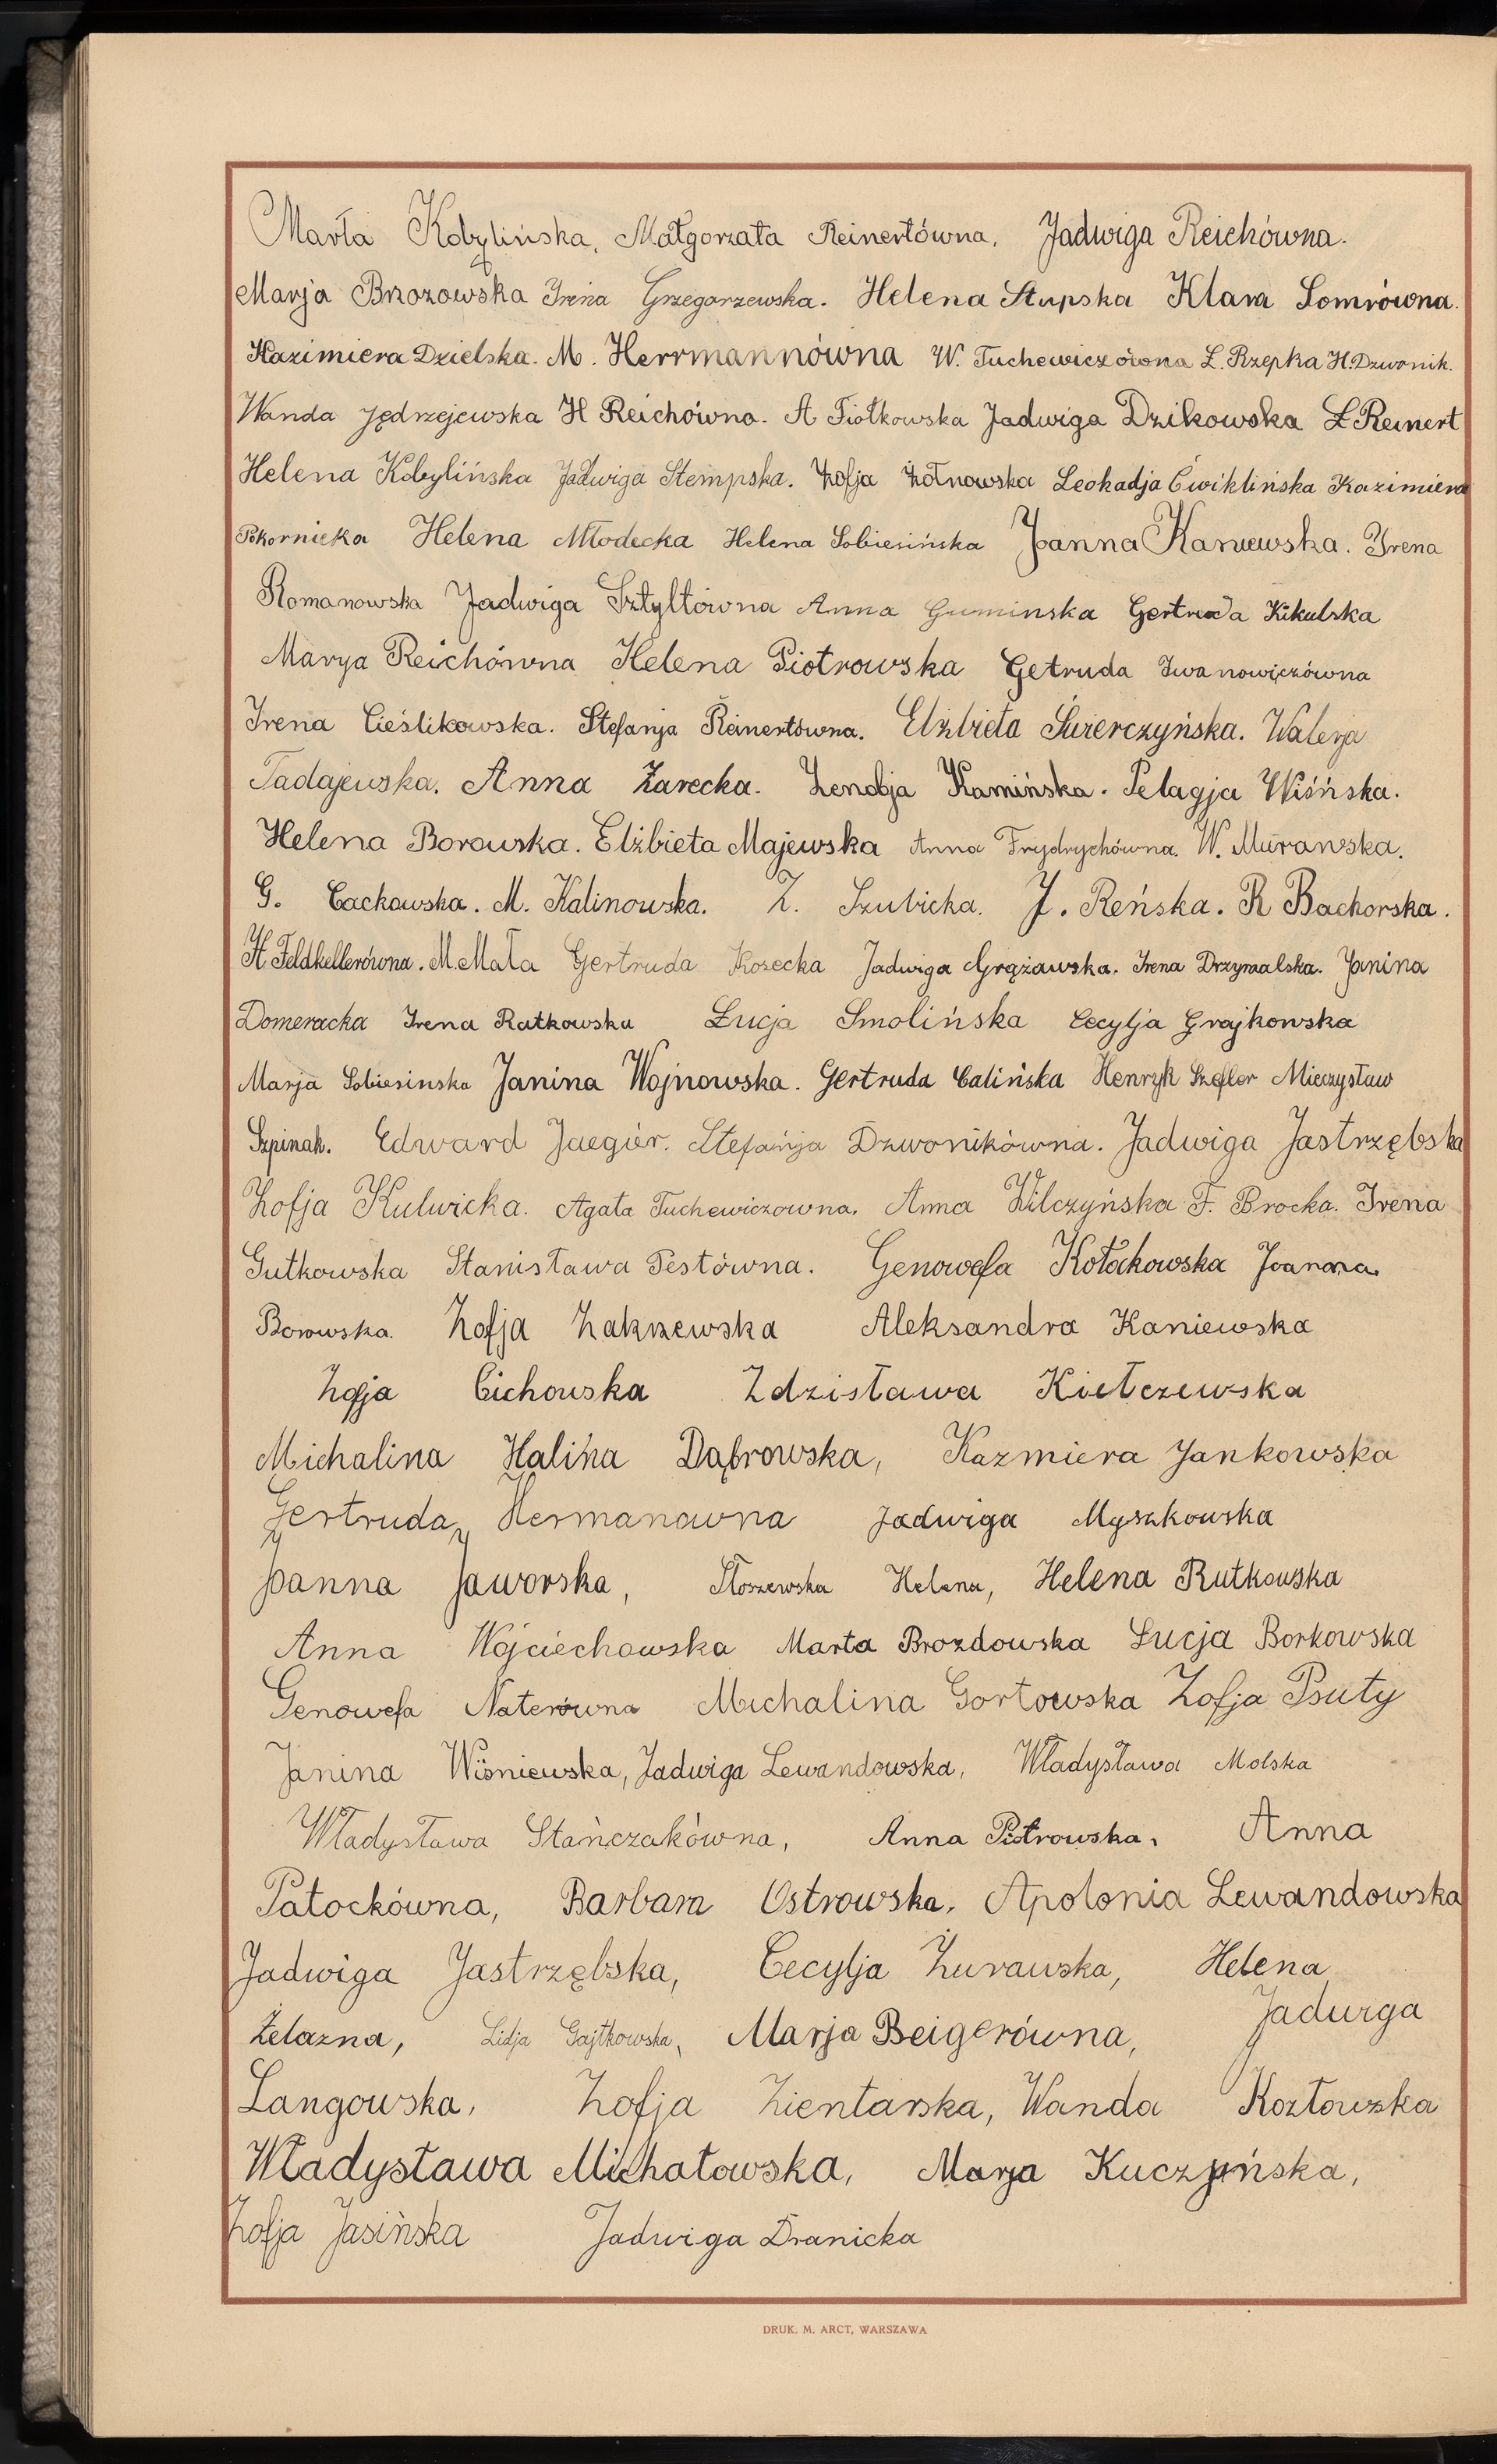 Marta Kobylińska, Małgorzata Reinertówna, Jadwiga Reichówna.
Marja Brzozowska Irena Grzegorzewska. Helena Słupska Klara Lomrówna.
Kazimiera Dzielska. M. Herrmannówna W. Tuchewiczówna L. Rzepka H. Dzwonik.
Wanda Jędrzejewska H Reichówna. A Fiołkowska Jadwiga Dzikowska Ł Reinert
Helena Kobylińska Jadwiga Stempska. Zofja Żółnowska Leokadja Ćwiklińska Kazimiera
Pokornicka Helena Młodecka Helena Sobiesińska Joanna Kaniewska. Irena
Romanowska Jadwiga Sztyltówna Anna Guminska Gertruda Kikulska
Marya Reichówna Helena Piotrowska Getruda Iwanowiczówna
Irena Cieślikowska. Stefanja Reinertówna. Elżbieta Świerczyńska. Walerja
Tadajewska. Anna Żarecka. Zenobja Kamińska. Pelagja Wiśńska.
Helena Borowska. Elżbieta Majewska Anna Frydrychówna. W. Murawska.
G. Cackowska. M. Kalinowska. Z. Szubicka. J. Reńska. R Bachorska.
H. Feldkellerówna. M. Mała Gertruda Kosecka Jadwiga Grążawska. Irena Drzymalska. Janina
Domeracka Irena Ratkowska Łucja Smolińska Cecylja Grajkowska
Marja Sobiesinska Janina Wojnowska. Gertruda Calińska Henryk Szefler Mieczysław
Szpinak. Edward Jaegier. Stefanja Dzwonikówna. Jadwiga Jastrzębska
Zofja Kulwicka. Agata Tuchewiczowna. Anna Wilczyńska F. Brocka. Irena
Gutkowska Stanisława Testówna. Genowefa Kołakowska Joanna
Borowska. Zofja Zakrzewska Aleksandra Kaniewska
Zofja Cichowska Zdzisława Kiełczewska
Michalina Halina Dąbrowska, Kazmiera Jankowska
Gertruda Hermanowna Jadwiga Myszkowska
Joanna Jaworska, Słoszewska Helena, Helena Rutkowska
Anna Wojciechowska Marta Brozdowska Łucja Borkowska
Genowefa Naterówna Michalina Gortowska Zofja Psuty
Janina Wiśniewska, Jadwiga Lewandowska, Władysława Molska
Władysława Stańczakówna, Anna Piotrowska, Anna
Patockówna, Barbara Ostrowska, Apolonia Lewandowska
Jadwiga Jastrzębska, Cecylja Żurawska, Helena
Żelazna, Lidja Gajtkowska, Marja Beigerówna, Jadwiga
Langowska, Zofja Zientarska, Wanda Kozłowska
Władysława Michałowska, Marja Kuczyńska,
Zofja Jasińska Jadwiga Dranicka
DRUK. M. ARCT, WARSZAWA